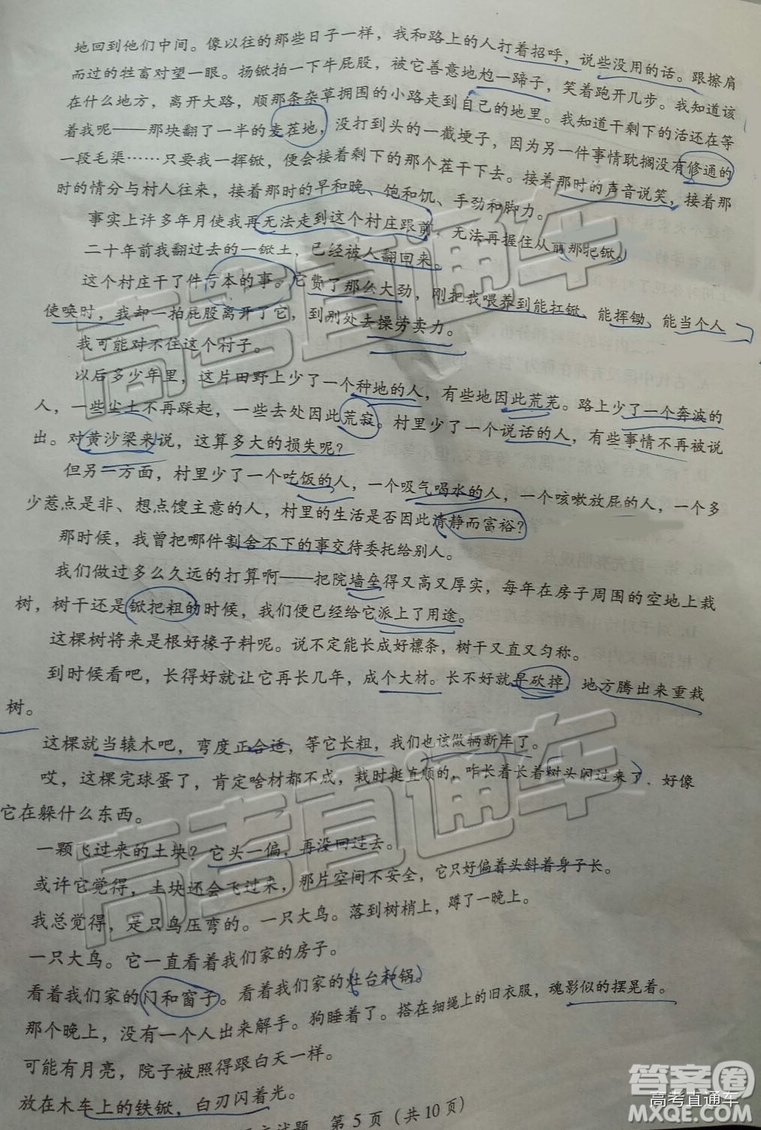 地回到他们中间。像以往的那些日子一样，我和路上的人打着招呼，说些没用的话。跟擦肩
而过的牲畜对望一眼。扬锨拍一下牛屁股，被它善意地尥一蹄子，笑着跑开几步。我知道该
在什么地方，离开大路，顺那条杂草拥围的小路走到自己的地里。我知道干剩下的活还在等
着我呢——那块翻了一半的麦茬地，没打到头的一截埂子，因为另一件事情耽搁没有修通的
一段毛渠……只要我一挥锨，便会接着剩下的那个茬干下去。接着那时的声音说笑，接着那
时的情分与村人往来，接着那时的早和晚、饱和饥、手劲和脚力。
事实上许多年月使我再无法走到这个村庄跟前，无法再握住从前那把锨。
二十年前我翻过去的一锨土，已经被人翻回来。
这个村庄干了件亏本的事。它费了那么大劲，刚把我喂养到能扛锨、能挥锄、能当个人
使唤时，我却一拍屁股离开了它，到别处去操劳卖力。
我可能对不住这个村子。
以后多少年里，这片田野上少了一个种地的人，有些地因此荒芜。路上少了一个奔波的
人，一些尘土不再踩起，一些去处因此荒寂。村里少了一个说话的人，有些事情不再被说
出。对黄沙梁来说，这算多大的损失呢？
但另一方面，村里少了一个吃饭的人，一个吸气喝水的人，一个咳嗽放屁的人，一个多
少惹点是非、想点馊主意的人，村里的生活是否因此清静而富裕？
那时候，我曾把哪件割舍不下的事交待委托给别人。
我们做过多么久远的打算啊——把院墙垒得又高又厚实，每年在房子周围的空地上栽
树，树干还是锨把粗的时候，我们便已经给它派上了用途。
这棵树将来是根好椽子料呢。说不定能长成好檩条，树干又直又匀称。
到时候看吧，长得好就让它再长几年，成个大材。长不好就早砍掉，地方腾出来重栽
树。
这棵就当辕木吧，弯度正合适，等它长粗，我们也该做辆新车了。
哎，这棵完球蛋了，肯定啥材都不成，栽时挺直顺的，咋长着长着树头闪过来了，好像
它在躲什么东西。
一颗飞过来的土块？它头一偏，再没回过去。
或许它觉得，土块还会飞过来，那片空间不安全，它只好偏着头斜着身子长。
我总觉得，是只鸟压弯的。一只大鸟。落到树梢上，蹲了一晚上。
一只大鸟。它一直看着我们家的房子。
看着我们家的门和窗子。看着我们家的灶台和锅。
那个晚上，没有一个人出来解手。狗睡着了。搭在细绳上的旧衣服，魂影似的摆晃着。
可能有月亮，院子被照得跟白天一样。
放在木车上的铁锨，白刃闪着光。
试题 第5页（共10页）
高考直通车
高考直通车
答案圈
高考直通车
MXQE.COM